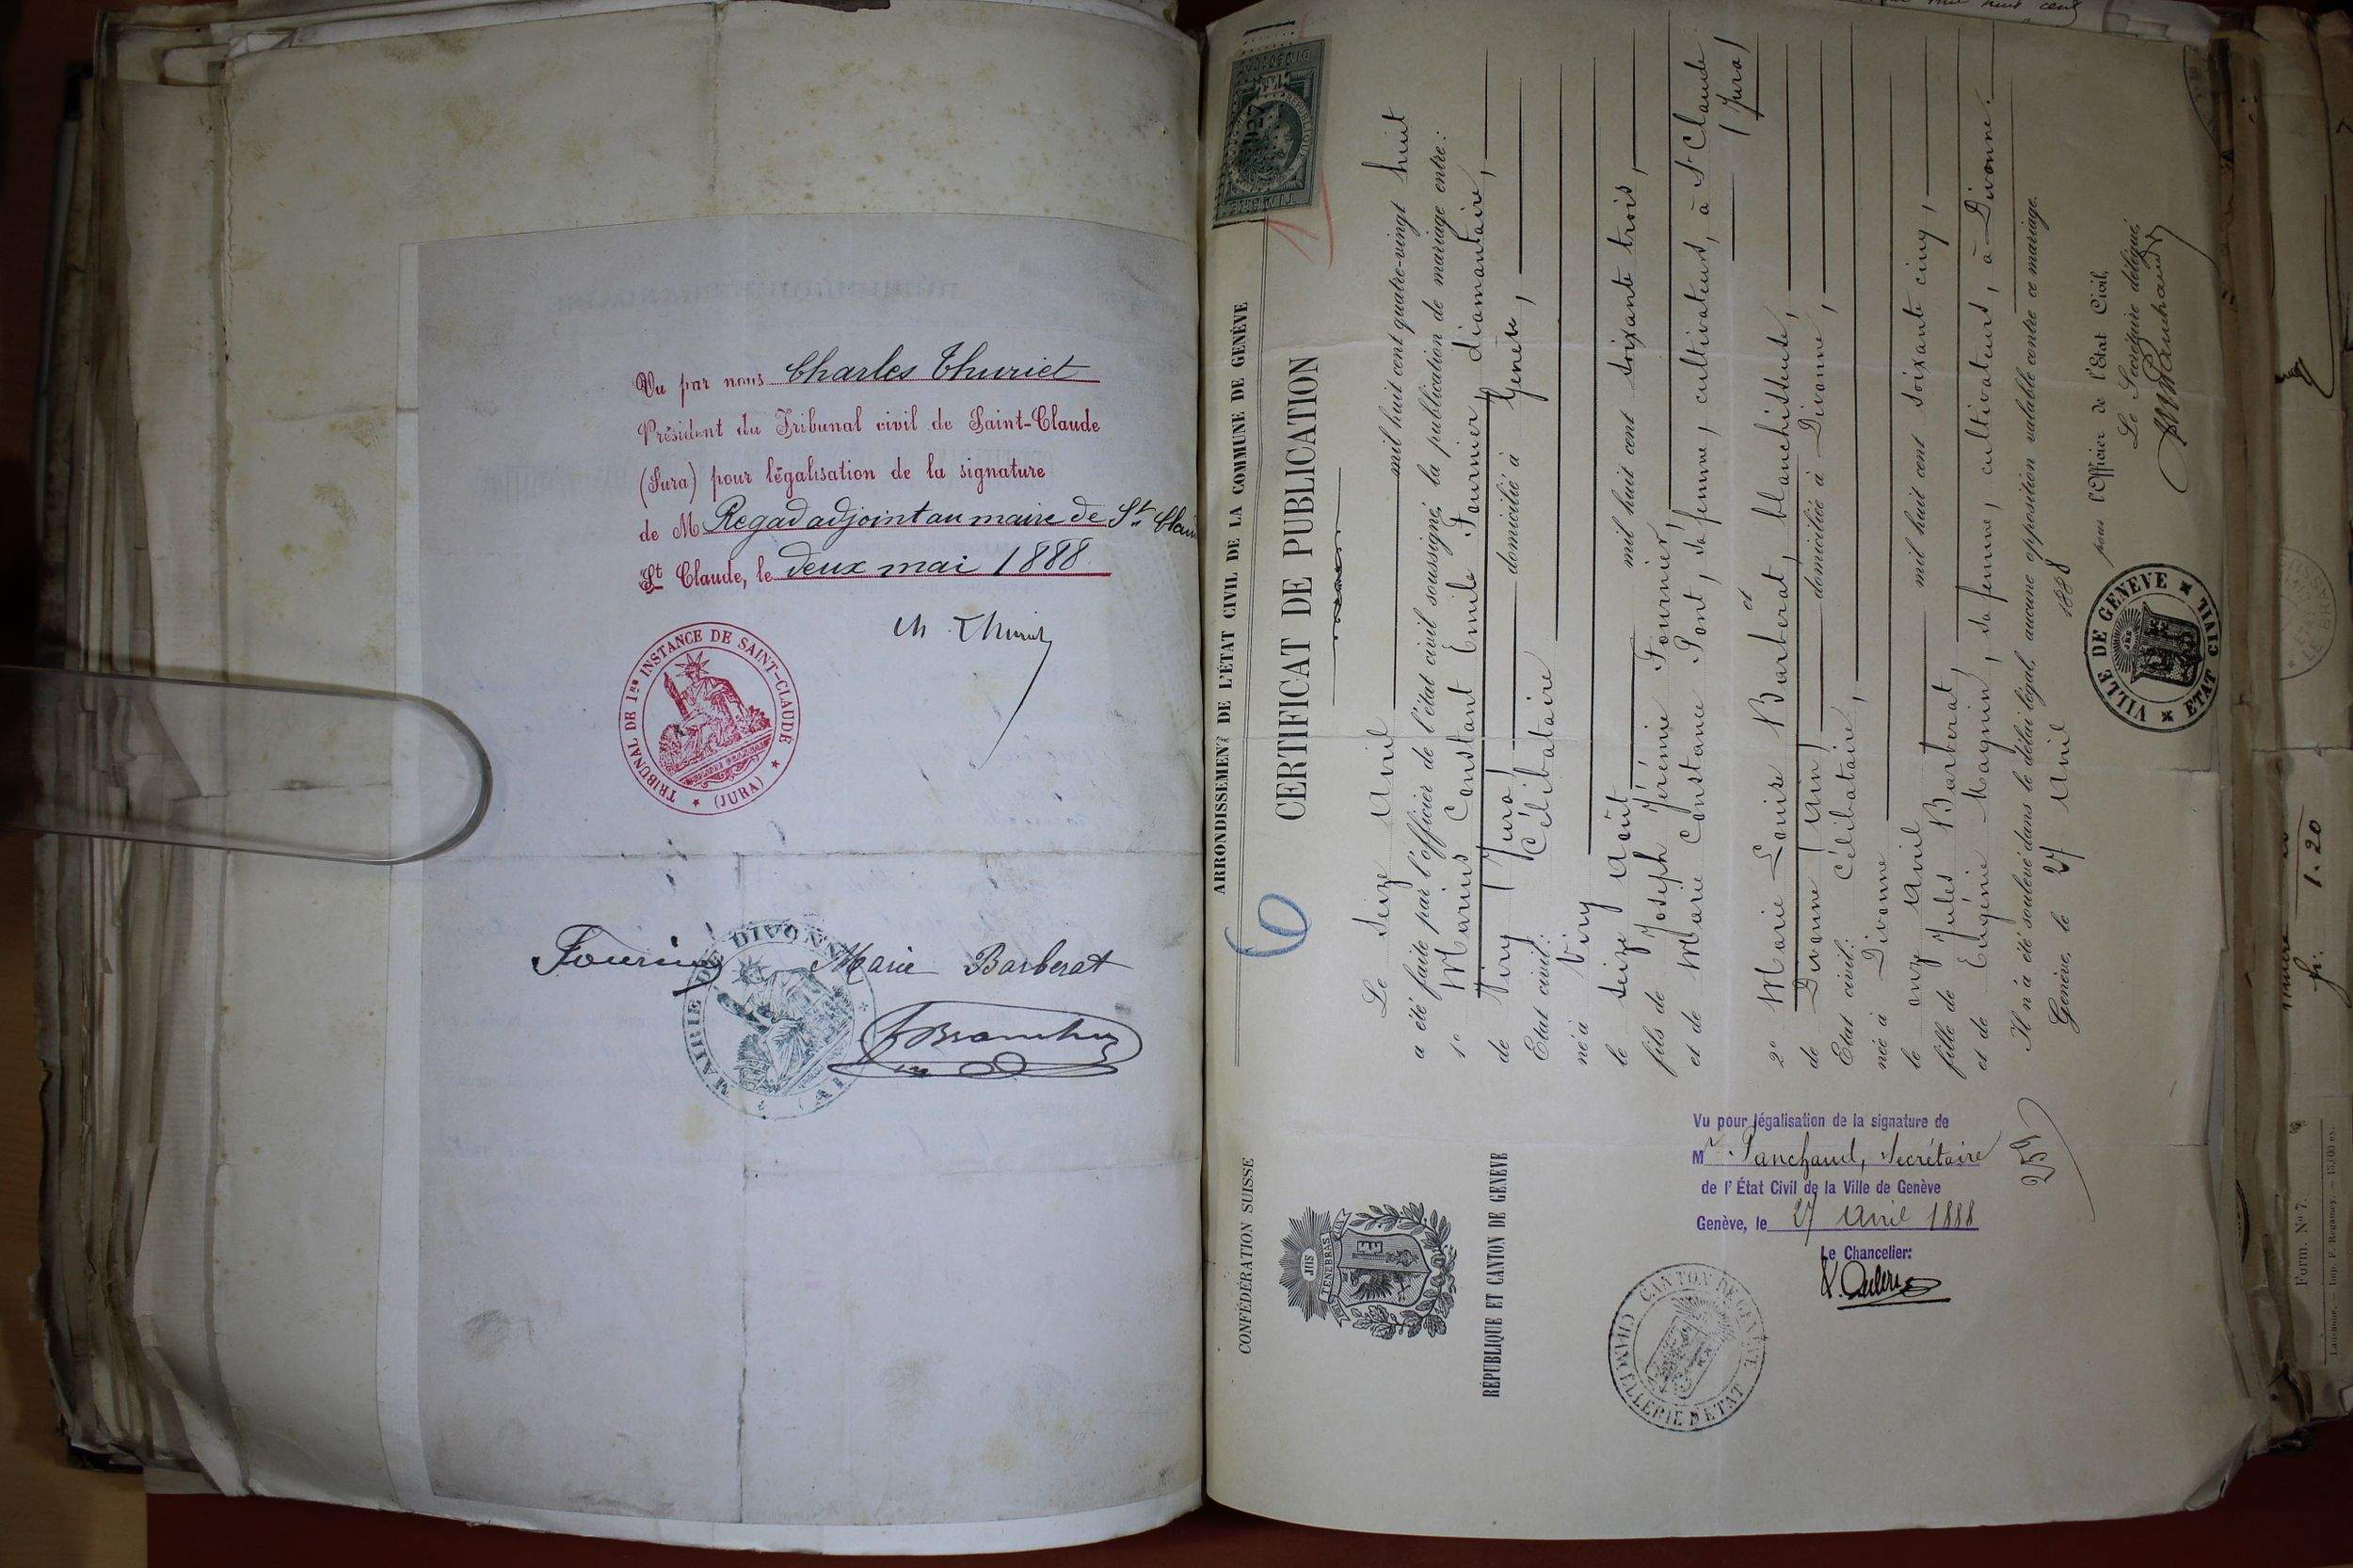 Vu par nous Charles Thuriet
Président du Tribunal civil de Saint-Claude
(Jura) pour légalisation de la signature
de M Regad adjoint au maire de St Clau
St Claude, le deux mai 1888
Ch Thuriet
TRIBUNAL DE 1re INSTANCE DE SAINT-CLAUDE
(JURA)
Fournier Marie Barberat
MAIRIE DE DIVONNE
(AIN)
CONFÉDÉRATION SUISSE
POST TENEBRAS LUX
JHS
RÉPUBLIQUE ET CANTON DE GENÈVE
ARRONDISSEMENT DE L'ÉTAT CIVIL DE LA COMMUNE DE GENÈVE
6
CERTIFICAT DE PUBLICATION
TIMBRE
RÉPUBLIQUE
Le seize avril mil huit cent quatre-vingt huit
a été faite par l'officier de l'état civil soussigné, la publication de mariage entre:
1º Marius Constant Emile Fournier, diamantaire,
de Viry (Jura) domicilié à Genève,
Etat civil: Célibataire
né à Viry
le seize Août mil huit cent soixante trois,
fils de Joseph Jérémie Fournier,
et de Marie Constance Pont, sa femme, cultivateurs, à St Claude
(Jura)
et
2º Marie-Louise Barberat, blanchisseuse,
de Divonne (Ain) domiciliée à Divonne,
Etat civil: Célibataire,
née à Divonne
le onze avril mil huit cent soixante cinq,
fille de Jules Barberat,
et de Eugénie Magnin, sa femme, cultivateurs, à Divonne.
Il n'a été soulevé dans le délai légal, aucune opposition valable contre ce mariage.
Genève, le 27 Avril 1888
pour l'Officier de l'Etat Civil,
Le Secrétaire délégué,
VILLE DE GENEVE
ETAT CIVIL
259
Vu pour légalisation de la signature de
Mr Panchaud, Secrétaire
de l'État Civil de la Ville de Genève
Genève, le 27 Avril 1888
Le Chancelier:
CHANCELLERIE D'ETAT
CANTON DE GENEVE
fr. 1.20
Form. Nº 7.